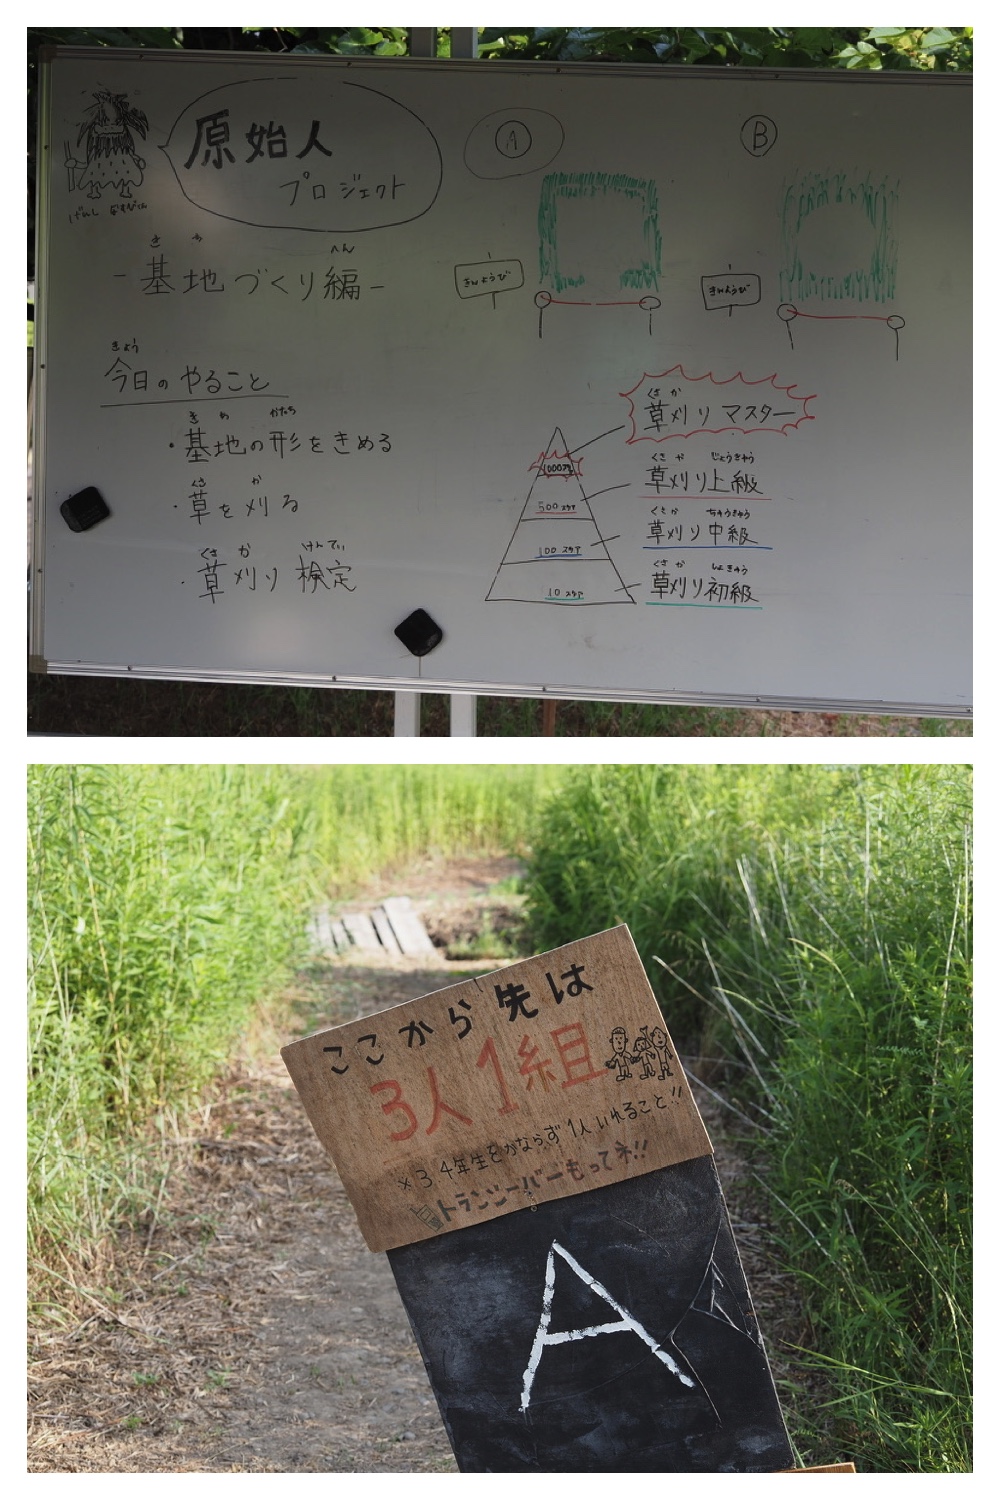 原始人
プロジェクト
きち
へん
-基地づくり編-
きょう
今日のやること
きち かたち
・基地の形をきめる
くさ か
・草を刈る
くさ か けんてい
・草刈り検定
A
きんようび
B
きんようび
くさ か
草刈りマスター
くさ か じょうきゅう
草刈り上級
くさ か ちゅうきゅう
草刈り中級
くさ か しょきゅう
草刈り初級
1000スタア
500スタア
100スタア
10スタア
ここから先は
3人1組
※3 4年生をかならず1人いれること!!
トランシーバーもってネ!!
A